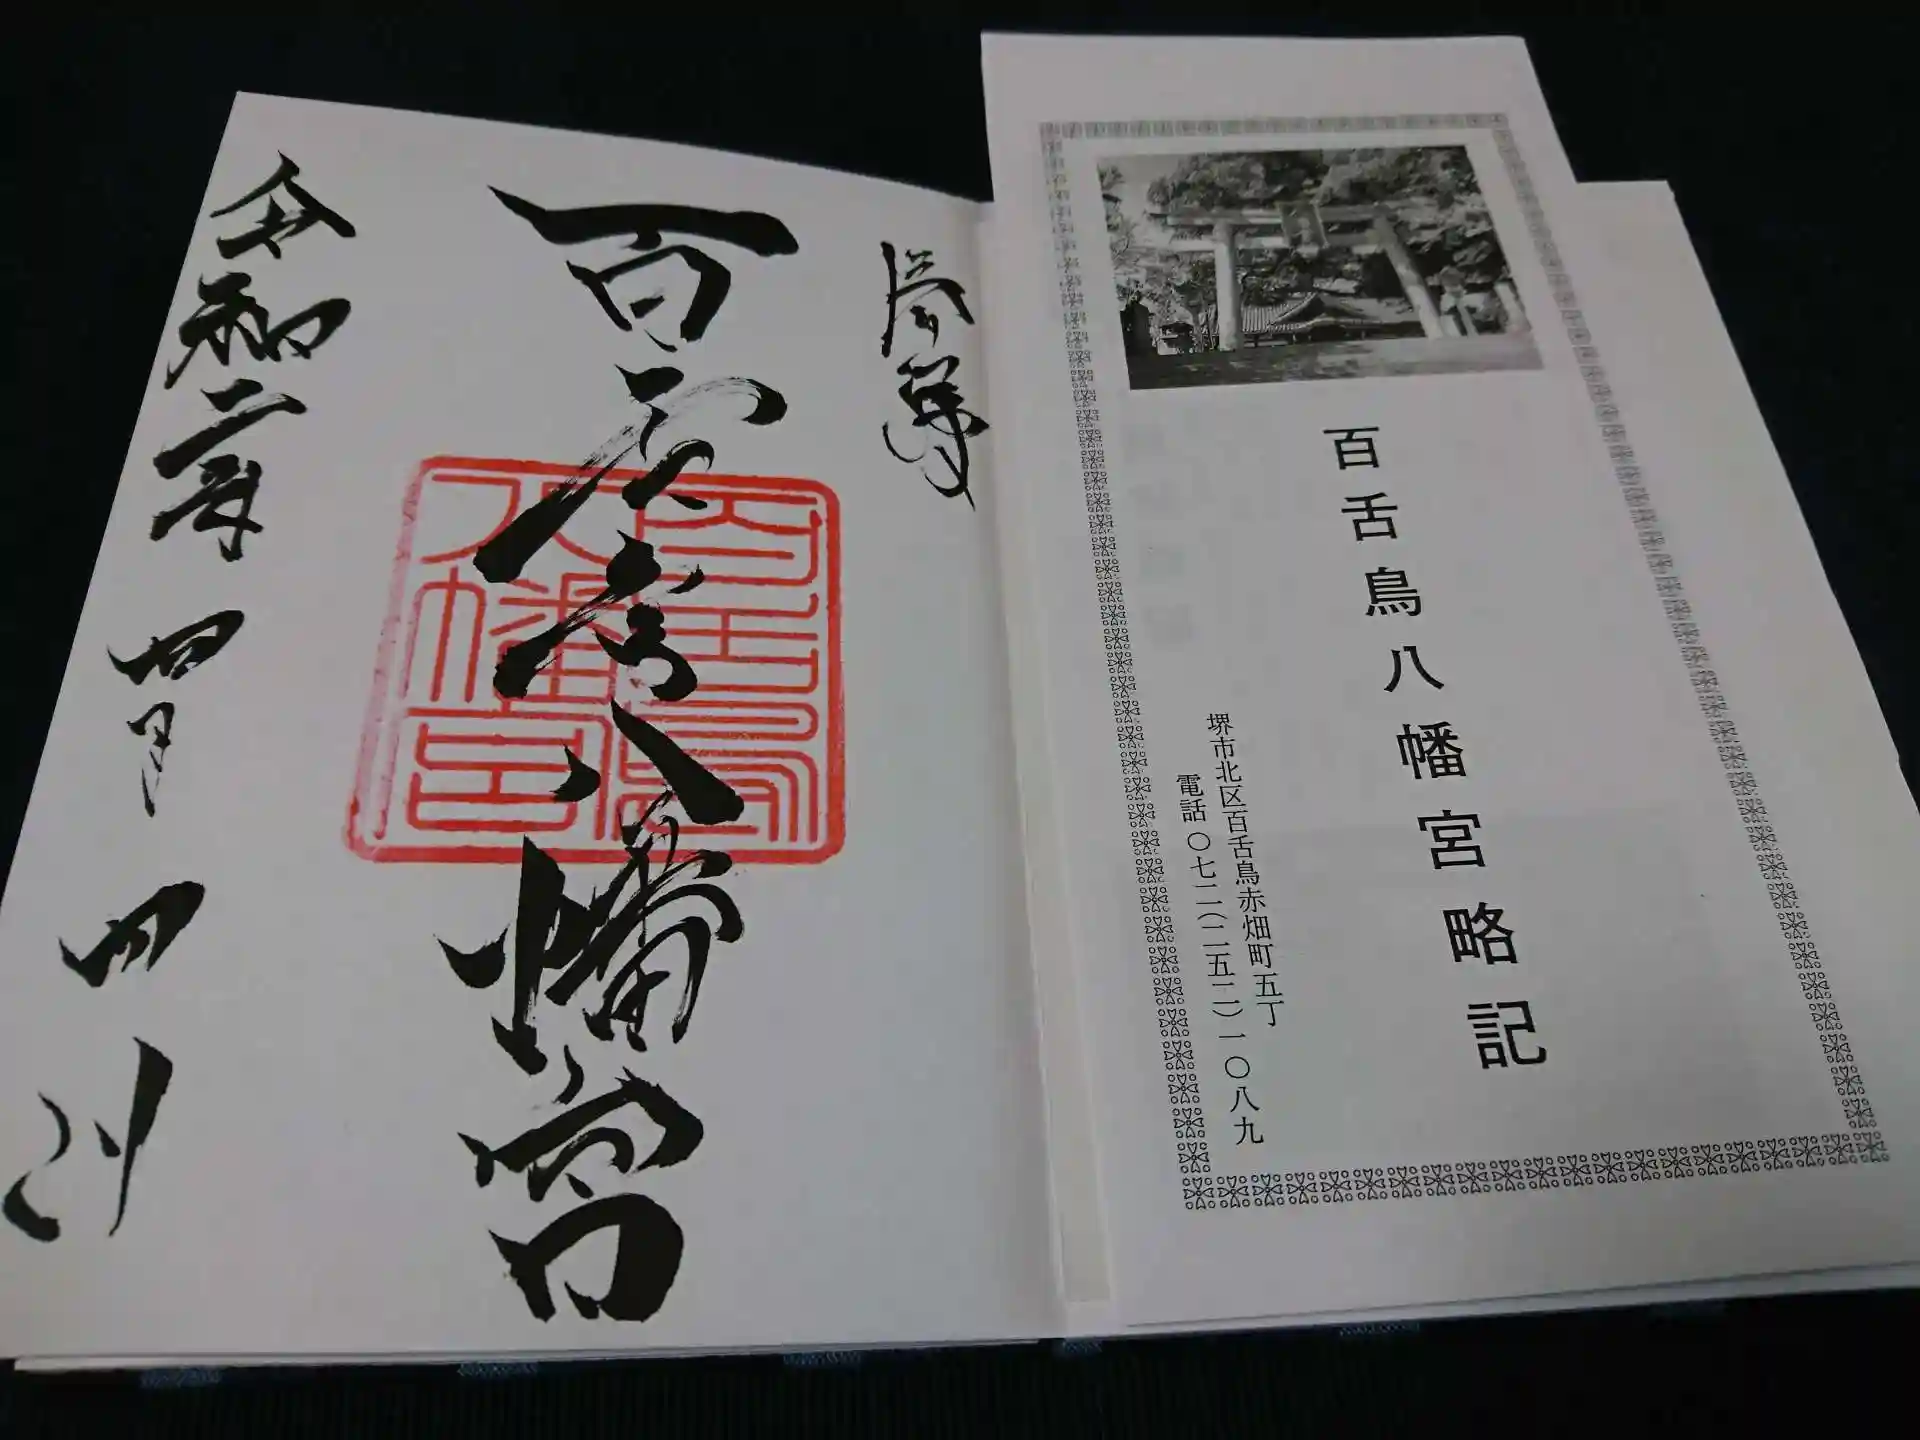 百舌鳥八幡宮略記
堺市北区百舌鳥赤畑町五丁
電話〇七二(二五二)一〇八九
奉拝
百舌鳥八幡宮
百舌鳥
八幡宮
令和二年四月四日